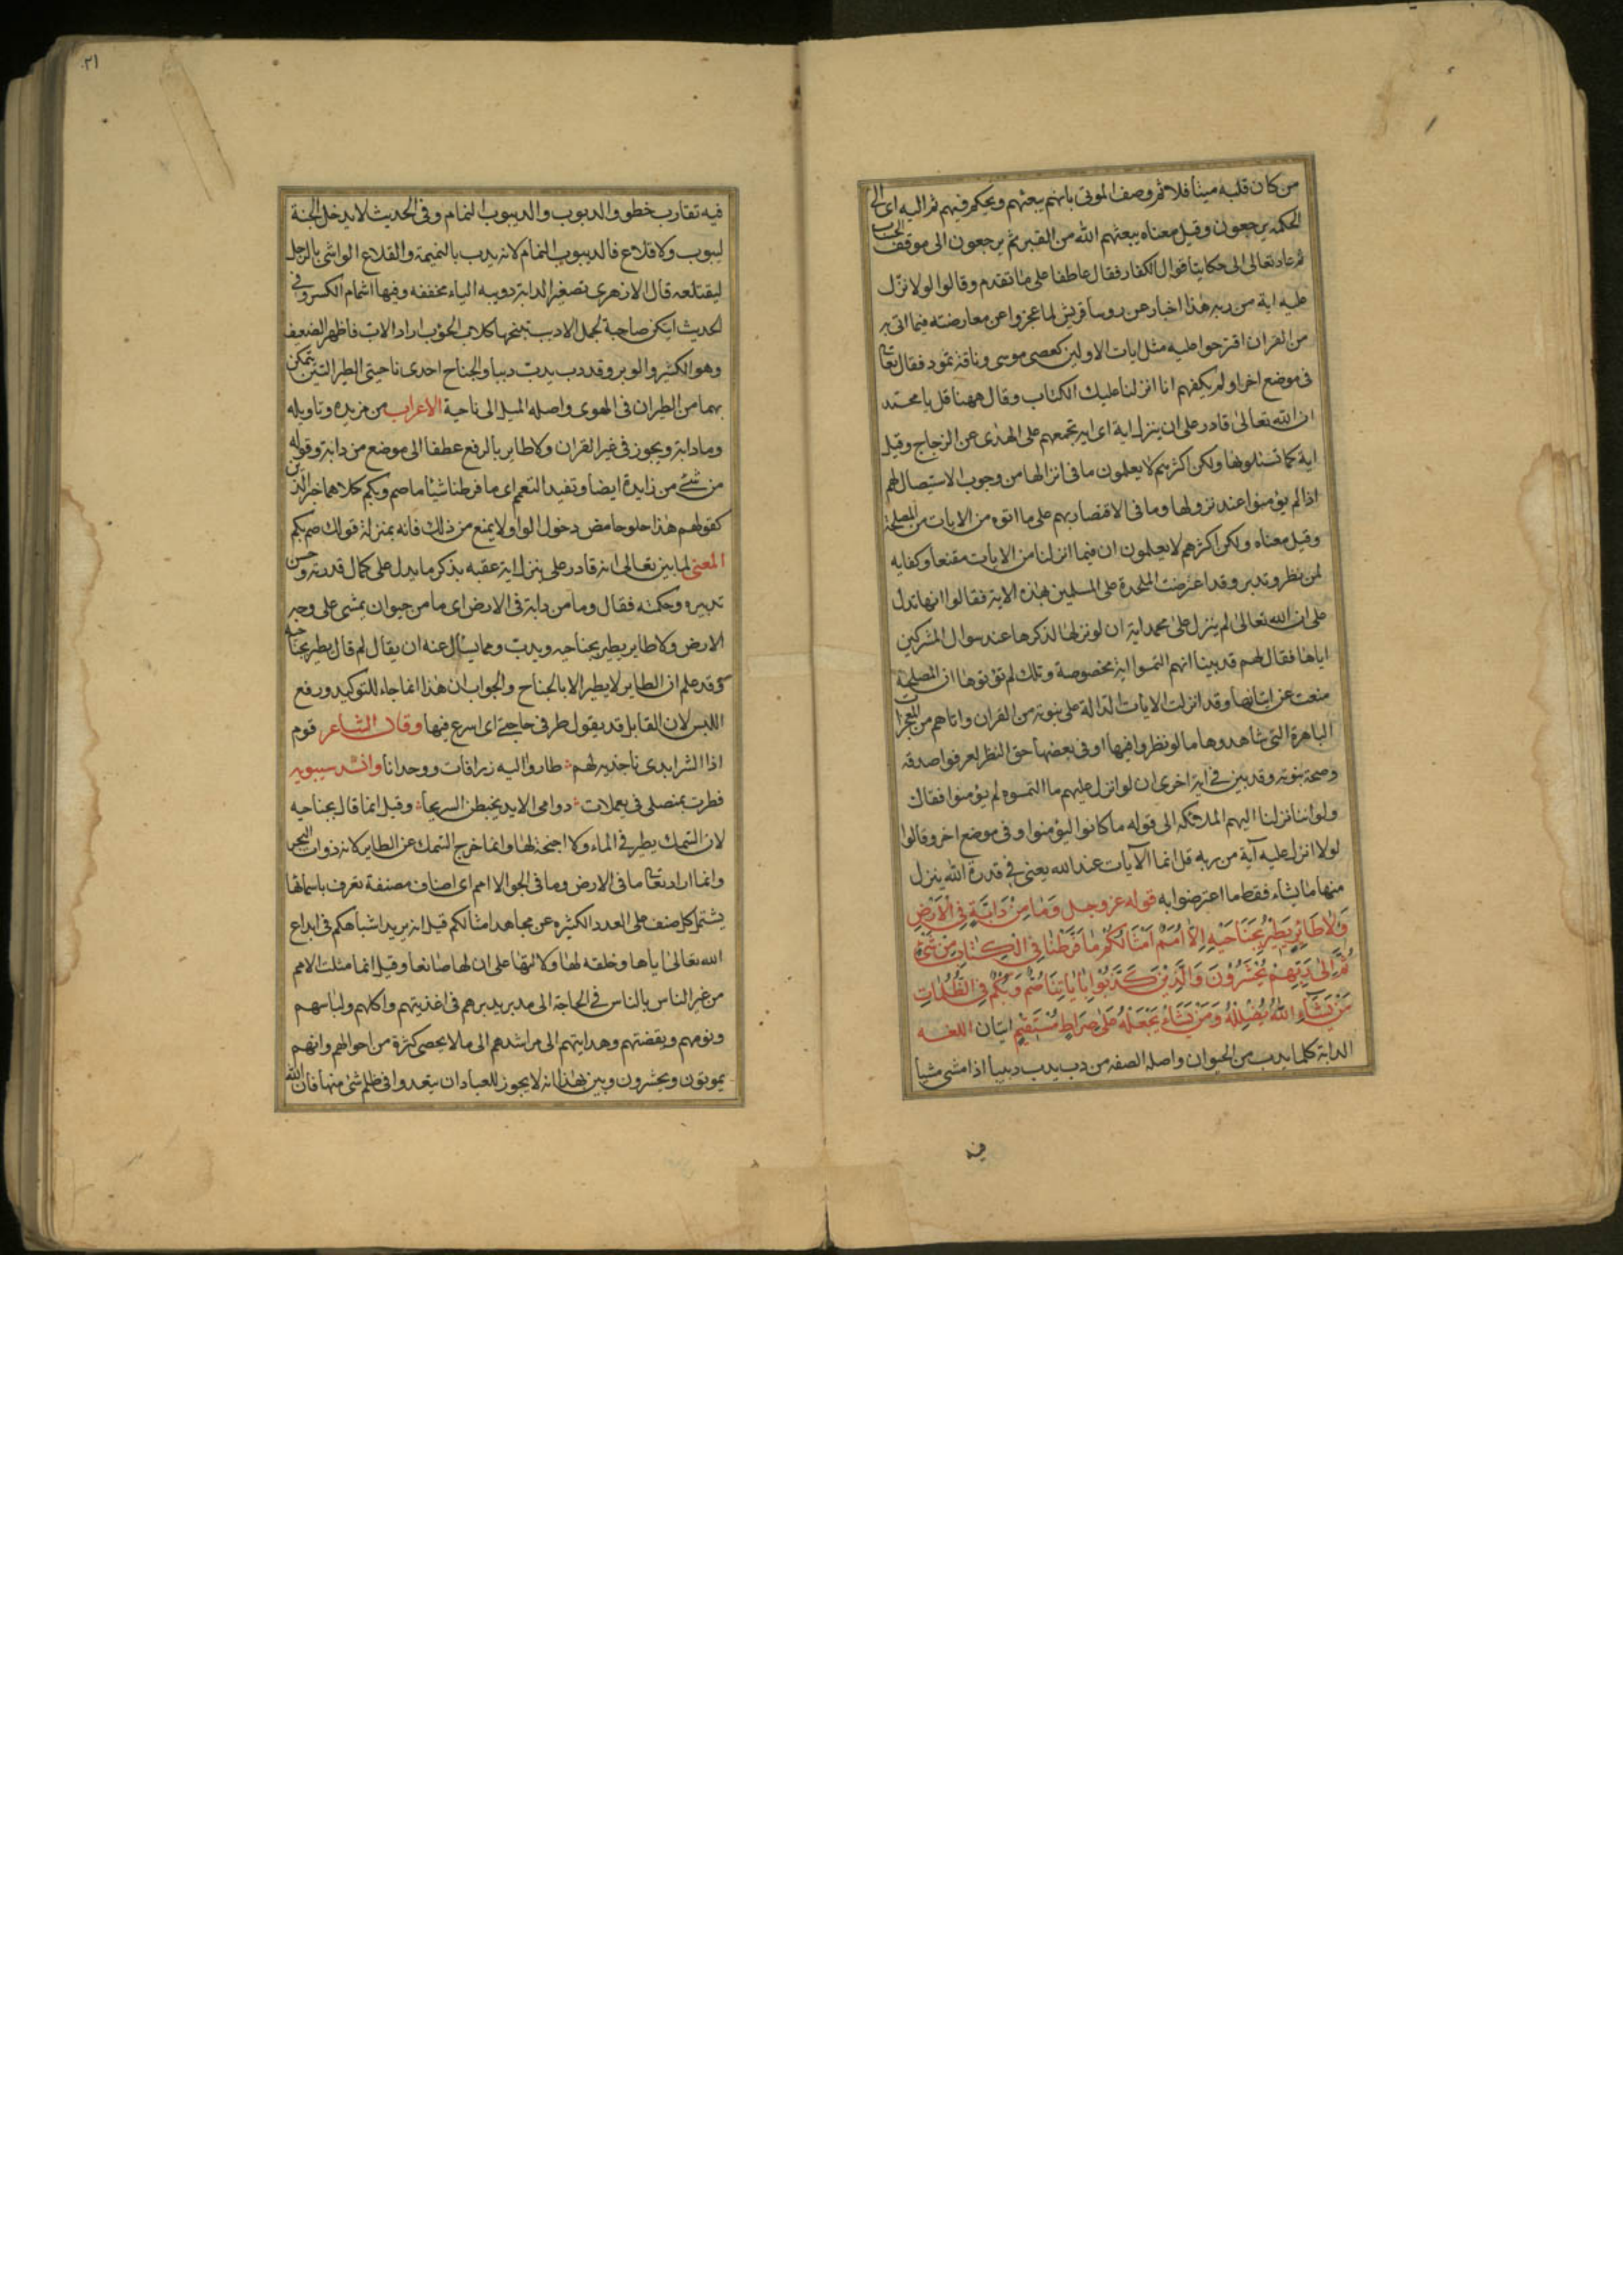 من كان قلبه ميتا فلا ثم وصف الموتى بانهم يبعثهم ويحكم فيهم ثم اليه اى الى
الحكمه يرجعون وقيل معناه يبعثهم الله من القبر ثم يرجعون الى موقف الحساب
ثم عاد تعالى الى حكاية اقوال الكفار فقال عاطفا على ما تقدم وقالوا لولا نزّل
عليه اية من ربه هذا اخبار عن روسا قريش لما عجزوا عن معارضته فيما اتى به
من القران اقترحوا عليه مثل ايات الاولين كعصى موسى وناقة ثمود فقال تعا
فى موضع اخر اولم يكفهم انا انزلنا عليك الكتاب وقال ههنا قل يا محمد
ان الله تعالى قادر على ان ينزل اية اى اية تجمعهم على الهدى عن الزجاج وقيل
اية كما تسئلونها ولكن اكثرهم لا يعلمون ما فى انزالها من وجوب الاستيصال لهم
اذا لم يؤمنوا عند نزولها وما فى الاقتصار بهم على ما اتوه من الايات من المصلحة
وقيل معناه ولكن اكثرهم لا يعلمون ان فيما انزلنا من الايات مقنعا وكفايه
لمن نظر وتدبر وقد اعترضت الملحدة على المسلمين بهذه الاية فقالوا انها تدل
على ان الله تعالى لم ينزل على محمد اية ان لو نزلها لذكرها عند سوال المشركين
اياها فقال لهم قد بينا انهم التمسوا اية مخصوصة وتلك لم تؤتوها ان المصلحة
منعت عن اتيانها وقد انزلت الايات الدالة على نبوته من القران واتاهم من المعجزات
الباهرة التى شاهدوها ما لو نظروا فيها او فى بعضها حق النظر لعرفوا صدقه
وصحة نبوته وقد بين فى اية اخرى ان لو انزل عليهم ما التمسوه لم يؤمنوا فقال
ولو اننا نزلنا اليهم الملئكة الى قوله ما كانوا ليؤمنوا وفى موضع اخر وقالوا
لولا انزل عليه آية من ربه قل انما الآيات عند الله يعنى فى قدرة الله ينزل
منها ما يشاء فقط ما اعترضوا به قوله عز وجل وَمَا مِنْ دَابَّةٍ فِي الْاَرْضِ
وَلَا طَائِرٍ يَطِيْرُ بِجَنَاحَيْهِ اِلَّا اُمَمٌ اَمْثَالُكُمْ مَا فَرَّطْنَا فِي الْكِتَابِ مِنْ شَيْءٍ
ثُمَّ اِلٰى رَبِّهِمْ يُحْشَرُوْنَ وَالَّذِيْنَ كَذَّبُوْا بِاٰيَاتِنَا صُمٌّ وَبُكْمٌ فِي الظُّلُمَاتِ
مَنْ يَشَاءِ اللّٰهُ يُضْلِلْهُ وَمَنْ يَشَاءُ يَجْعَلْهُ عَلٰى صِرَاطٍ مُسْتَقِيْمٍ ايتان اللغــه
الدابة كلما يدب من الحيوان واصله الصفه من دب يدب دبيبا اذا مشى مشيا
فيه
٢١
فيه تقارب خطو والدبوب والديبوب النمام وفى الحديث لا يدخل الجنة
ليبوب ولا قلاع فالديبوب النمام لانه يدب بالنميمة والقلاع الواشى بالرجل
ليقتلعه قال الازهرى تصغير الدابة دويبه الياء مخففه وفيها اشمام الكسر وفى
الحديث ايتكن صاحبة الجمل الادبب تنبحها كلاب الحؤب اراد الادب فاظهر الضعيف
وهو الكثير الوبر وقد دب يدب دبيبا والجناح احدى ناحيتى الطير التين يتمكن
بهما من الطيران فى الهوى واصله الميل الى ناحية الاعراب من مزيده وتاويله
وما دابة ويجوز فى غير القران ولا طاير بالرفع عطفا الى موضع من دابة وقوله
من شئ من زايدة ايضا وتفيد التعميم اى ما فرطنا شيئا ما صم وبكم كلاهما خبر الذين
كقولهم هذا حلو حامض دخول الواو لا يمنع من ذلك فانه بمنزلة قولك صم بكم
المعنى لما بين تعالى انه قادر على ينزل اية عقبه بذكر ما يدل على كمال قدرته وحسن
تدبيره وحكمته فقال وما من دابة فى الارض اى ما من حيوان يمشى على وجه
الارض ولا طاير يطير بجناحيه ويدب ومما يسأل عنه ان يقال لم قال يطير بجناحيه
وقد علم ان الطاير لا يطير الا بالجناح والجواب ان هذا انما جاء للتوكيد ورفع
اللبس لان القايل قد يقول طر فى حاجتى اى اسرع فيها وقال الشاعر قوم
اذا الشر ابدى ناجذيه لهم طاروا اليه زرافات ووحدانا وانشد سيبويه
فطرت بمنصلى فى يعملات دوامى الايد يخبطن السريحا وقيل انما قال بجناحيه
لان السمك يطير فى الماء ولا اجنحة لها وانما خرج السمك عن الطاير لانه ذوات البحر
وانما اراد تعا ما فى الارض وما فى الجو الا امم اى اصناف مصنفة تعرف باسمائها
يشتمل كل صنف على العدد الكثيره عن مجاهد امثالكم قيل انه يريد اشباهكم فى ابداع
الله تعالى اياها وخلقه لها ودلالتها على ان لها صانعا وقيل انما مثلت الامم
من غير الناس بالناس فى الحاجة الى مدبر يدبرهم فى اغذيتهم واكلهم ولباسهم
ونومهم ويقضتهم وهدايتهم الى مراشدهم الى ما لا يحصى كثرة من احوالهم وانهم
يموتون ويحشرون وبين بهذا انه لا يجوز للعباد ان يتعدوا فى ظلم شئ منها فان الله